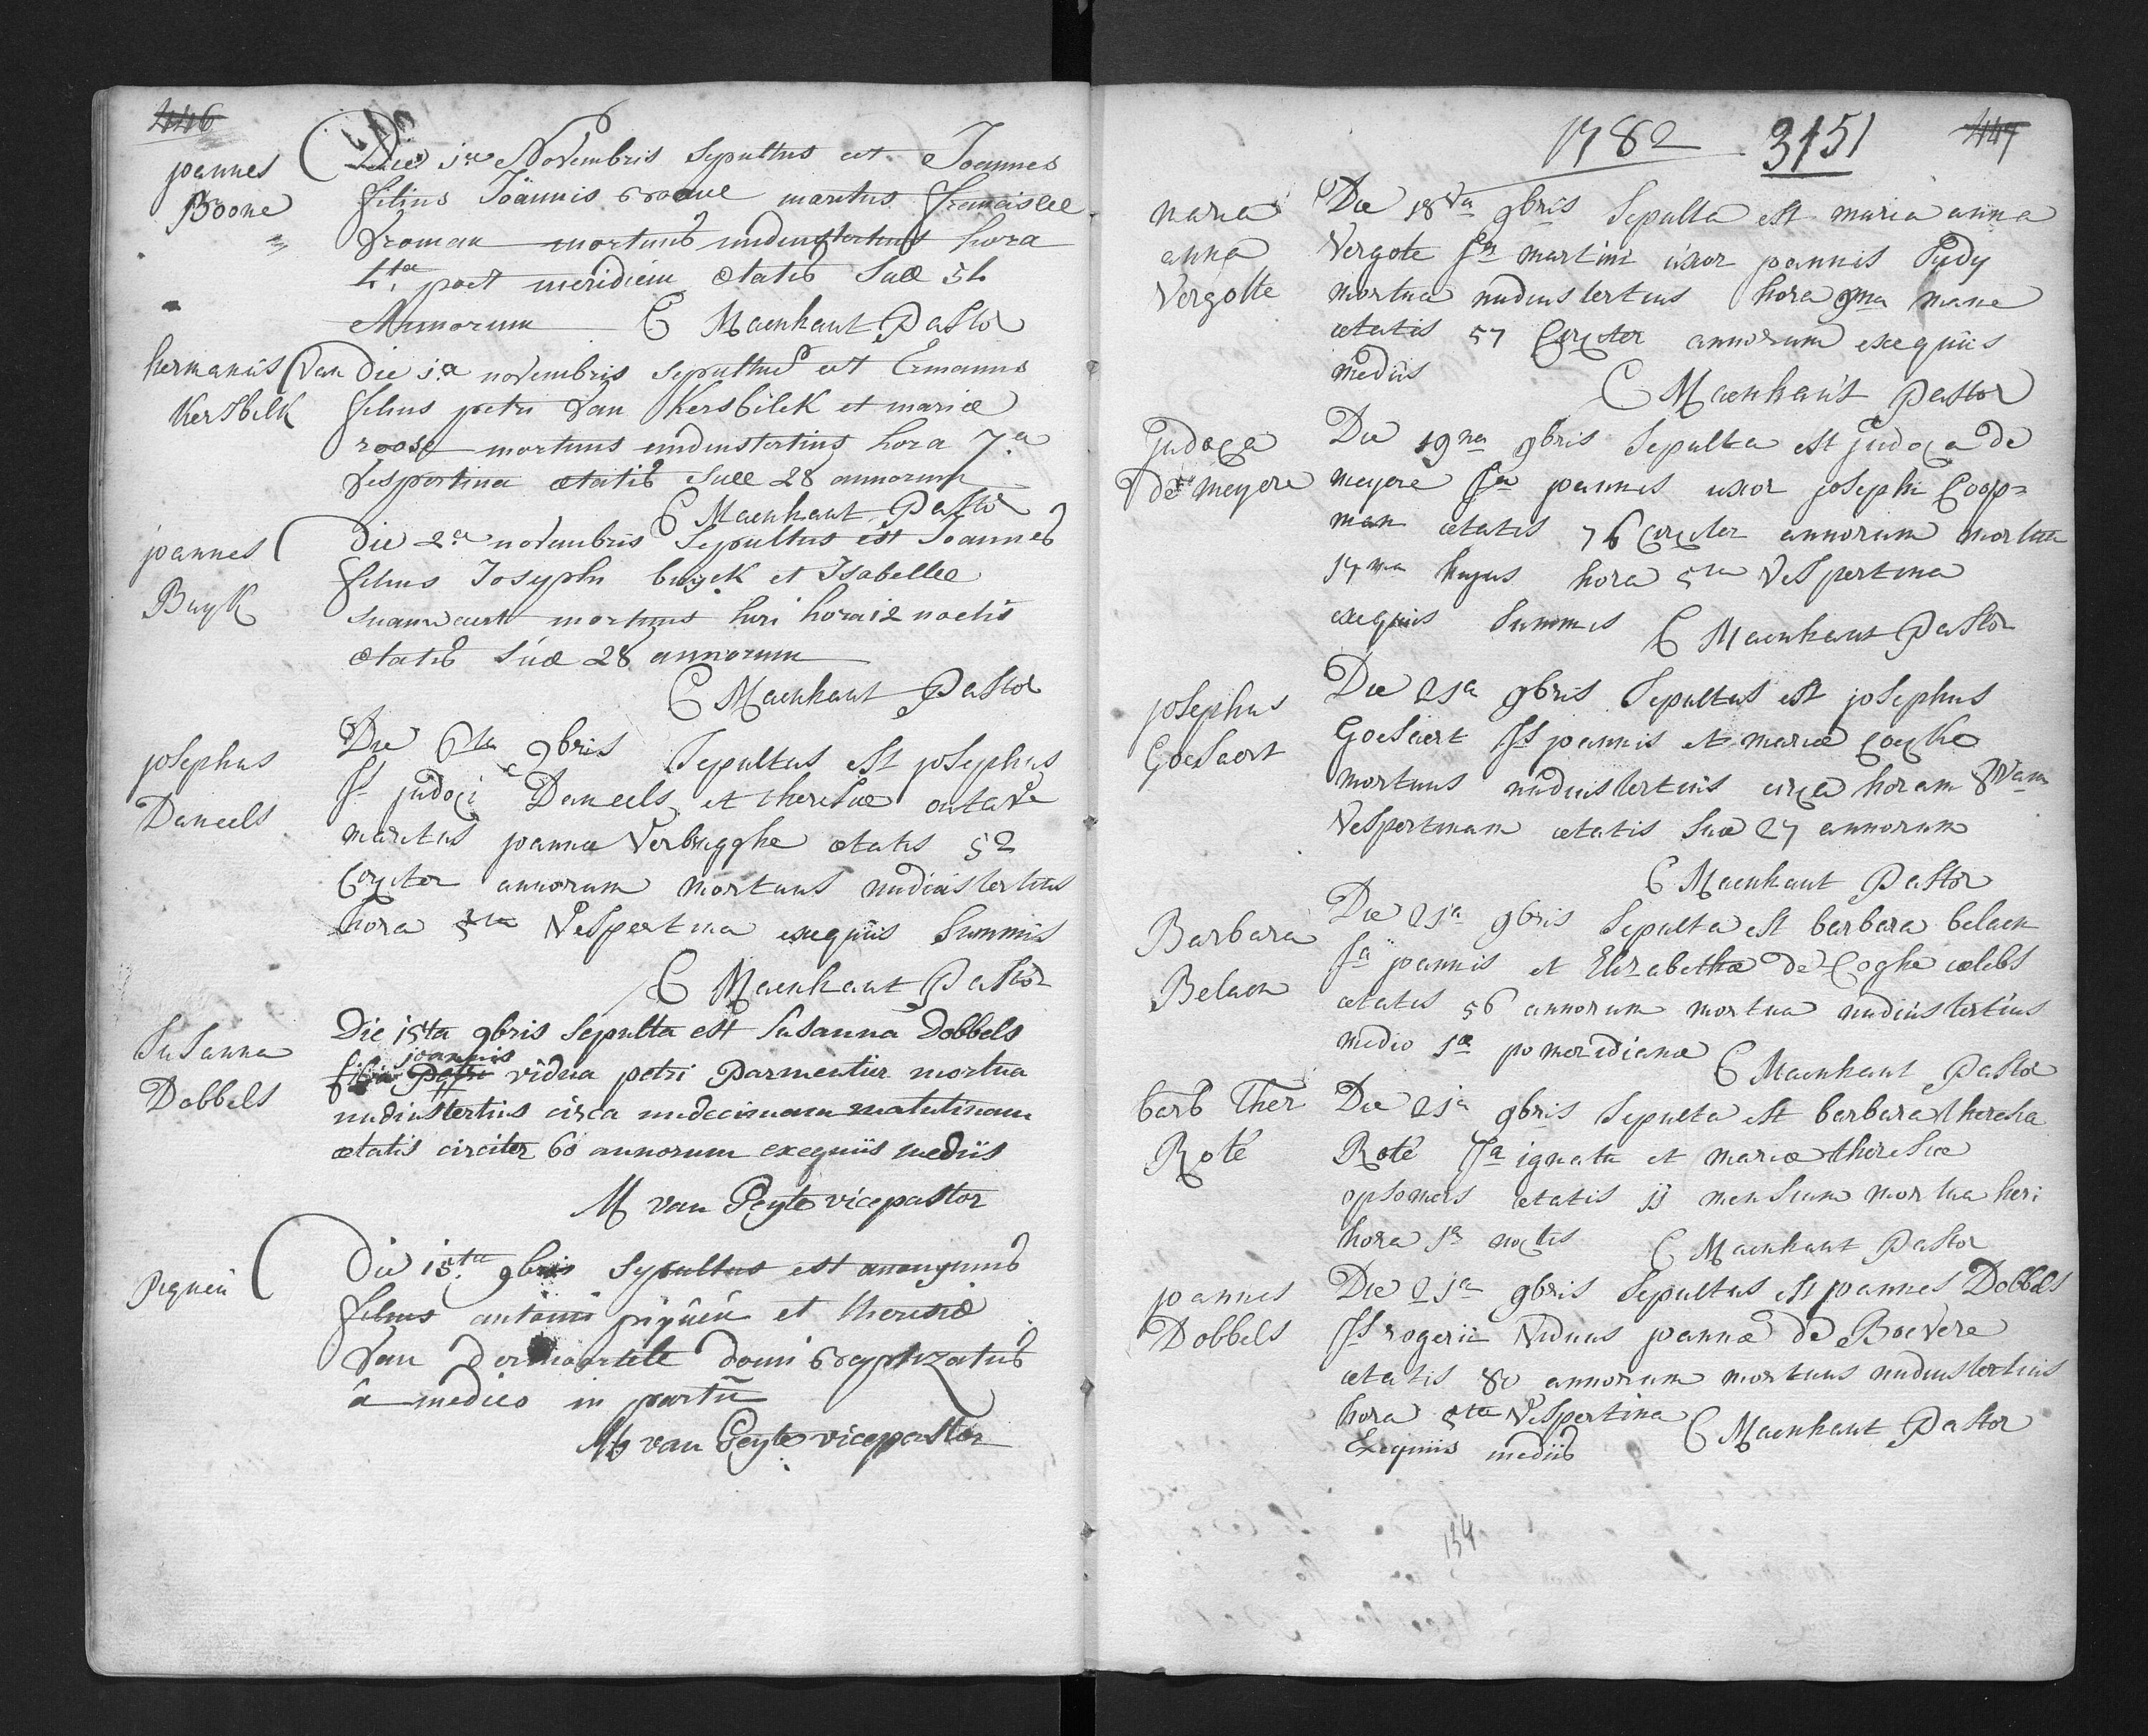 446
joannes
Boone
Die 1a Novembris sepultus est Joannes
filius Joännis boone maritus franciscæ
vroman mortuus nudiustertius hora
4ta post meridiem ætatis suæ 54
Annorum C Maenhaut Pastor
hermanus van
Kersbilk
Die 1a novembris sepultus est Ermanus
filius petri van Kersbilck et mariæ
roose mortuus nudiustertius hora 7a
vespertina ætatis suæ 28 annorum
C Maenhaut Pastor
joannes
Buyk
Die 2a novembris sepultus est Joannes
filius Josephi buyck et Isabellæ
mortuus heri hora 12 noctis
ætatis suæ 28 annorum
C Maenhaut Pastor
josephus
Daneels
Die 6ta 9bris sepultus est josephus
fs judoci Daneels et theresiæ
maritus joannæ Verbrugghe ætatis 52
Circiter annorum mortuus nudiustertius
hora 5ta vespertina exequiis summis
C Maenhaut Pastor
Susanna
Dobbels
Die 15ta 9bris sepulta est Susanna Dobbels
joannis
filia petri vidua petri Parmentier mortua
nudiustertius circa undecimam matutinam
ætatis circiter 60 annorum exequiis mediis
M van Peyte vicepastor
piqueu
Die 15ta 9bris sepultus est anonymus
filius antonii piqueu et theresiæ
van Dermaerliele domi baptizatus
à medico in partu
M van Peyte vicepastor
1782 3151 447
maria
anna
Vergotte
Die 18va 9bris sepulta est maria anna
Vergote fa martini uxor joannis Pydy
mortua nudiustertius hora 9ma mane
ætatis 57 Circiter annorum exequiis
mediis
C Maenhaut Pastor
Judoca
De meyere
Die 19na 9bris sepulta est judoca de
meyere fa joannis uxor josephi Coop=
man ætatis 76 Circiter annorum mortua
17ma hujus hora 5ta vespertina
exequiis summis C Maenhaut Pastor
josephus
Goesaert
Die 21a 9bris sepultus est josephus
Goesaert fs joannis et mariæ Coucke
mortuus nudiustertius circa horam 8vam
vespertinam ætatis suæ 27 annorum
C Maenhaut Pastor
Barbara
Belaen
Die 21a 9bris sepulta est barbara belaen
fa joannis et Elizabethæ de Coghe cælebs
ætatis 56 annorum mortua nudiustertius
medio 1æ pomeridianæ
C Maenhaut Pastor
barb Ther
Roté
Die 21a 9bris sepulta est barbara theresia
Roté fa ignatii et mariæ theresiæ
opsomers ætatis 11 mensium mortua heri
hora 1a noctis C Maenhaut Pastor
joannes
Dobbels
Die 21a 9bris sepultus est joannes Dobbels
fs rogerii viduus joannæ de Boevere
ætatis 80 annorum mortuus nudiustertius
hora 5ta vespertina C Maenhaut Pastor
Exequiis mediis
134